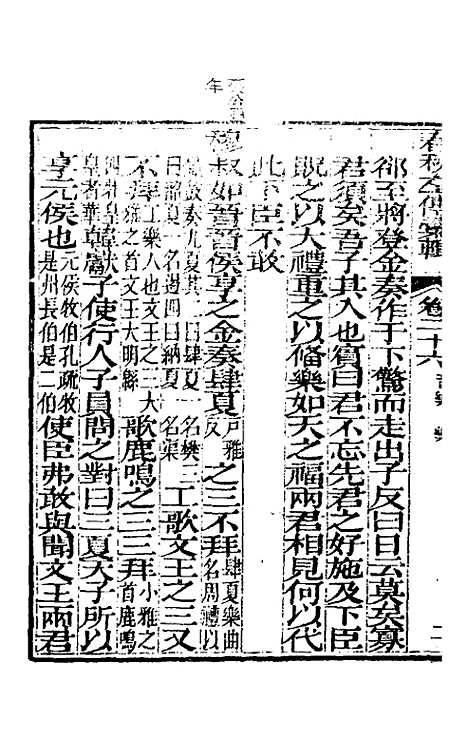 春秋全傳▢輯 卷二十六
郤至將登金奏作于下驚而走出子反曰日云莫矣寡
君須矣吾子其入也賓曰君不忘先君之好施及下臣
貺之以大禮重之以備樂如天之福兩君相見何以代
此下臣不敢
穆叔如晉晉侯享之金奏肆夏戶雅反之三不拜肆夏樂曲名周禮以
鐘鼓奏九夏其二曰肆夏一名樊三曰韶夏一名遏四曰納夏一名渠工歌文王之三又
不拜工樂人也文王之三大雅之首文王大明緜歌鹿鳴之三三拜小雅之首鹿鳴
四牡皇皇者華韓獻子使行人子員問之對曰三夏天子所以
享元侯也元侯牧伯孔疏牧是州長伯是二伯使臣弗敢與聞文王兩君
襄公四年